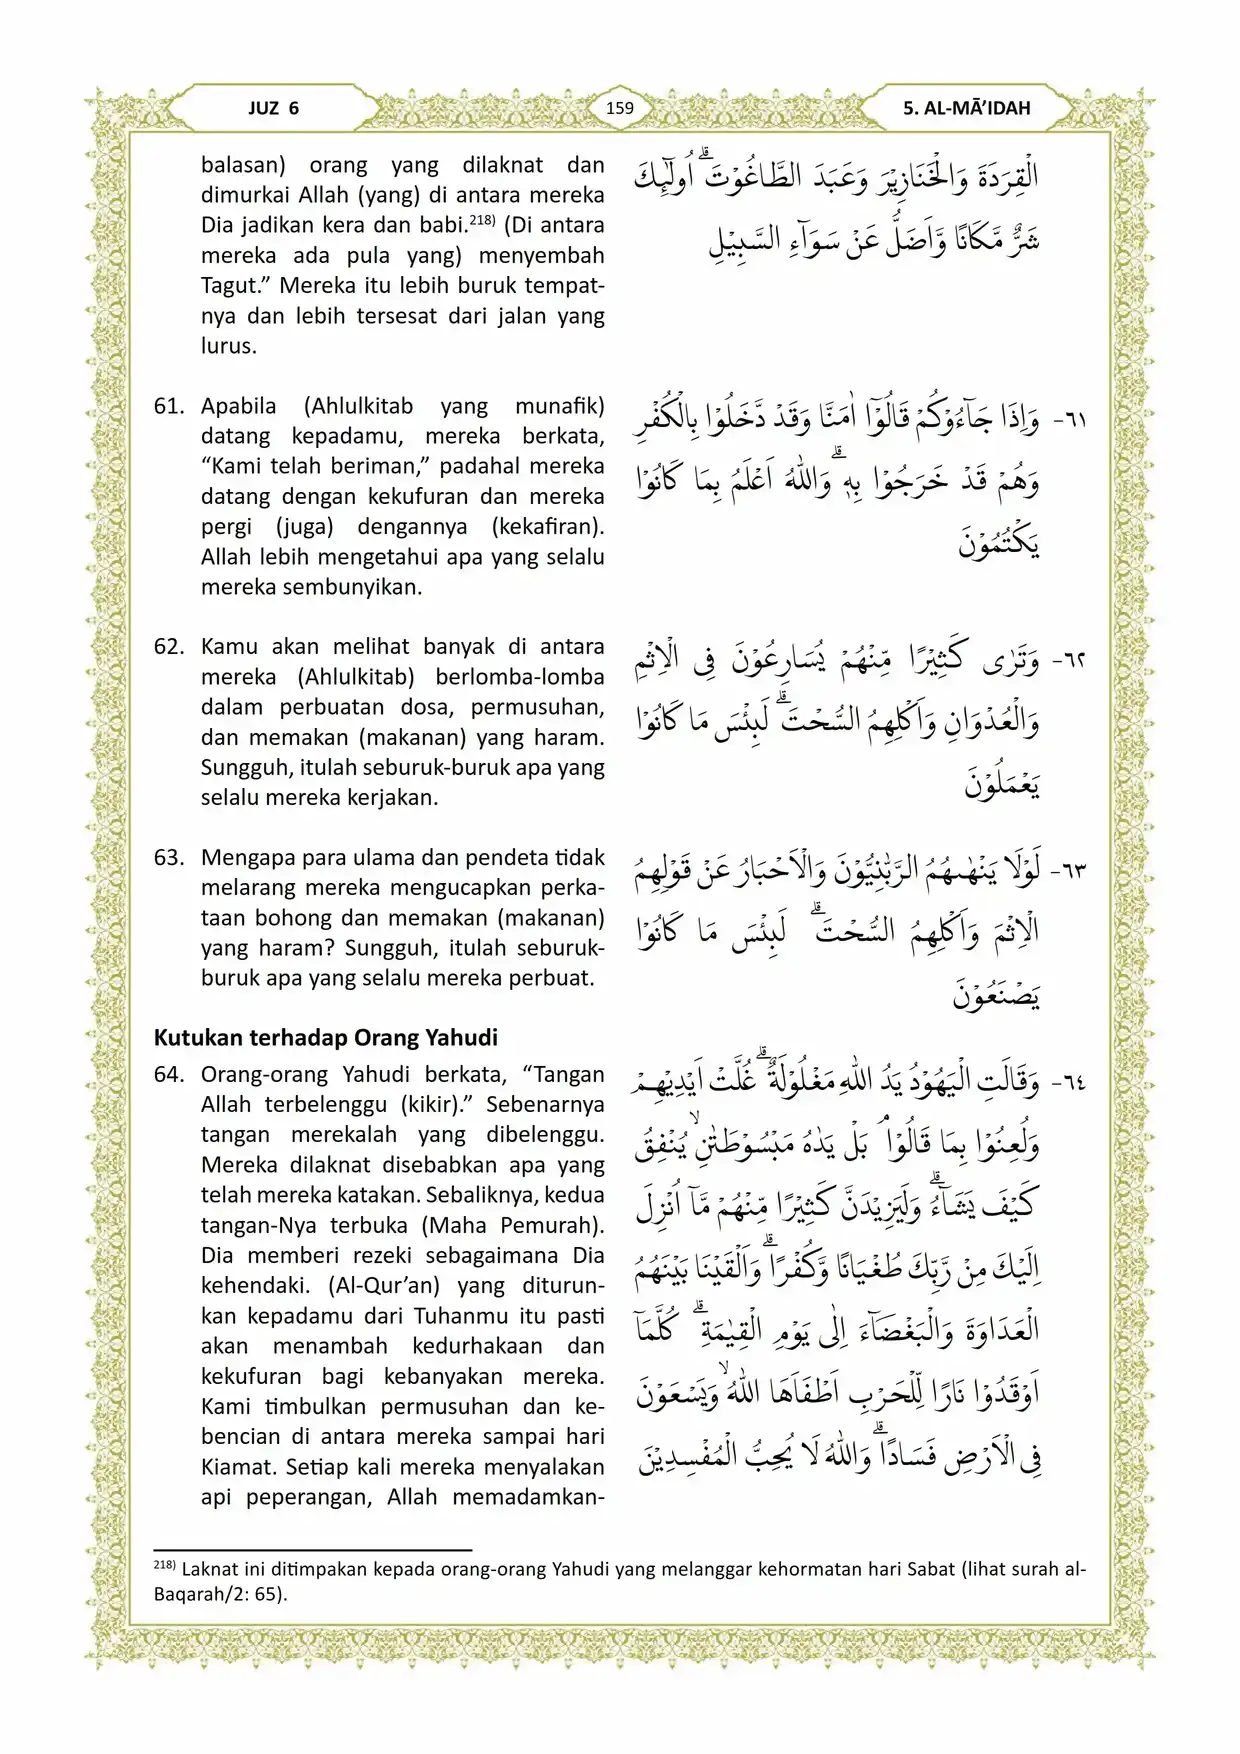 JUZ 6
159
5. AL-MĀ’IDAH
balasan) orang yang dilaknat dan
dimurkai Allah (yang) di antara mereka
Dia jadikan kera dan babi.²¹⁸⁾ (Di antara
mereka ada pula yang) menyembah
Tagut.” Mereka itu lebih buruk tempat-
nya dan lebih tersesat dari jalan yang
lurus.
الْقِرَدَةَ وَالْخَنَازِيْرَ وَعَبَدَ الطَّاغُوْتَۗ اُولٰۤىِٕكَ
شَرٌّ مَّكَانًا وَّاَضَلُّ عَنْ سَوَاۤءِ السَّبِيْلِ
61. Apabila (Ahlulkitab yang munafik)
datang kepadamu, mereka berkata,
“Kami telah beriman,” padahal mereka
datang dengan kekufuran dan mereka
pergi (juga) dengannya (kekafiran).
Allah lebih mengetahui apa yang selalu
mereka sembunyikan.
٦١- وَاِذَا جَاۤءُوْكُمْ قَالُوْٓا اٰمَنَّا وَقَدْ دَّخَلُوْا بِالْكُفْرِ
وَهُمْ قَدْ خَرَجُوْا بِهٖۗ وَاللّٰهُ اَعْلَمُ بِمَا كَانُوْا
يَكْتُمُوْنَ
62. Kamu akan melihat banyak di antara
mereka (Ahlulkitab) berlomba-lomba
dalam perbuatan dosa, permusuhan,
dan memakan (makanan) yang haram.
Sungguh, itulah seburuk-buruk apa yang
selalu mereka kerjakan.
٦٢- وَتَرٰى كَثِيْرًا مِّنْهُمْ يُسَارِعُوْنَ فِى الْاِثْمِ
وَالْعُدْوَانِ وَاَكْلِهِمُ السُّحْتَۗ لَبِئْسَ مَا كَانُوْا
يَعْمَلُوْنَ
63. Mengapa para ulama dan pendeta tidak
melarang mereka mengucapkan perka-
taan bohong dan memakan (makanan)
yang haram? Sungguh, itulah seburuk-
buruk apa yang selalu mereka perbuat.
٦٣- لَوْلَا يَنْهٰىهُمُ الرَّبّٰنِيُّوْنَ وَالْاَحْبَارُ عَنْ قَوْلِهِمُ
الْاِثْمَ وَاَكْلِهِمُ السُّحْتَۗ لَبِئْسَ مَا كَانُوْا
يَصْنَعُوْنَ
Kutukan terhadap Orang Yahudi
64. Orang-orang Yahudi berkata, “Tangan
Allah terbelenggu (kikir).” Sebenarnya
tangan merekalah yang dibelenggu.
Mereka dilaknat disebabkan apa yang
telah mereka katakan. Sebaliknya, kedua
tangan-Nya terbuka (Maha Pemurah).
Dia memberi rezeki sebagaimana Dia
kehendaki. (Al-Qur’an) yang diturun-
kan kepadamu dari Tuhanmu itu pasti
akan menambah kedurhakaan dan
kekufuran bagi kebanyakan mereka.
Kami timbulkan permusuhan dan ke-
bencian di antara mereka sampai hari
Kiamat. Setiap kali mereka menyalakan
api peperangan, Allah memadamkan-
٦٤- وَقَالَتِ الْيَهُوْدُ يَدُ اللّٰهِ مَغْلُوْلَةٌۗ غُلَّتْ اَيْدِيْهِمْ
وَلُعِنُوْا بِمَا قَالُوْاۘ بَلْ يَدٰهُ مَبْسُوْطَتٰنِۙ يُنْفِقُ
كَيْفَ يَشَاۤءُۗ وَلَيَزِيْدَنَّ كَثِيْرًا مِّنْهُمْ مَّآ اُنْزِلَ
اِلَيْكَ مِنْ رَّبِّكَ طُغْيَانًا وَّكُفْرًاۗ وَاَلْقَيْنَا بَيْنَهُمُ
الْعَدَاوَةَ وَالْبَغْضَاۤءَ اِلٰى يَوْمِ الْقِيٰمَةِۗ كُلَّمَآ
اَوْقَدُوْا نَارًا لِّلْحَرْبِ اَطْفَاَهَا اللّٰهُۙ وَيَسْعَوْنَ
فِى الْاَرْضِ فَسَادًاۗ وَاللّٰهُ لَا يُحِبُّ الْمُفْسِدِيْنَ
²¹⁸⁾ Laknat ini ditimpakan kepada orang-orang Yahudi yang melanggar kehormatan hari Sabat (lihat surah al-
Baqarah/2: 65).